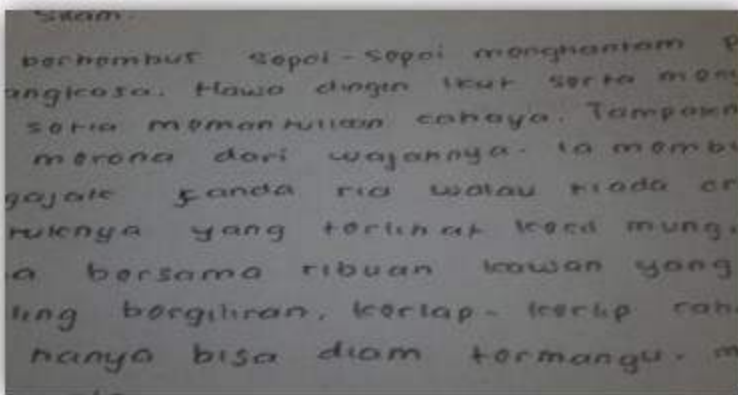 silam.
berhembus sepoi-sepoi menghantam P
angkasa. Hawa dingin ikut serta men
setia memantulkan cahaya. Tampakn
merona dari wajahnya. Ia memb
gajak canda ria walau tiada or
ruknya yang terlihat kecil mung
a bersama ribuan kawan yang
ling bergiliran, kerlap-kerlip cah
hanya bisa diam termangu. m